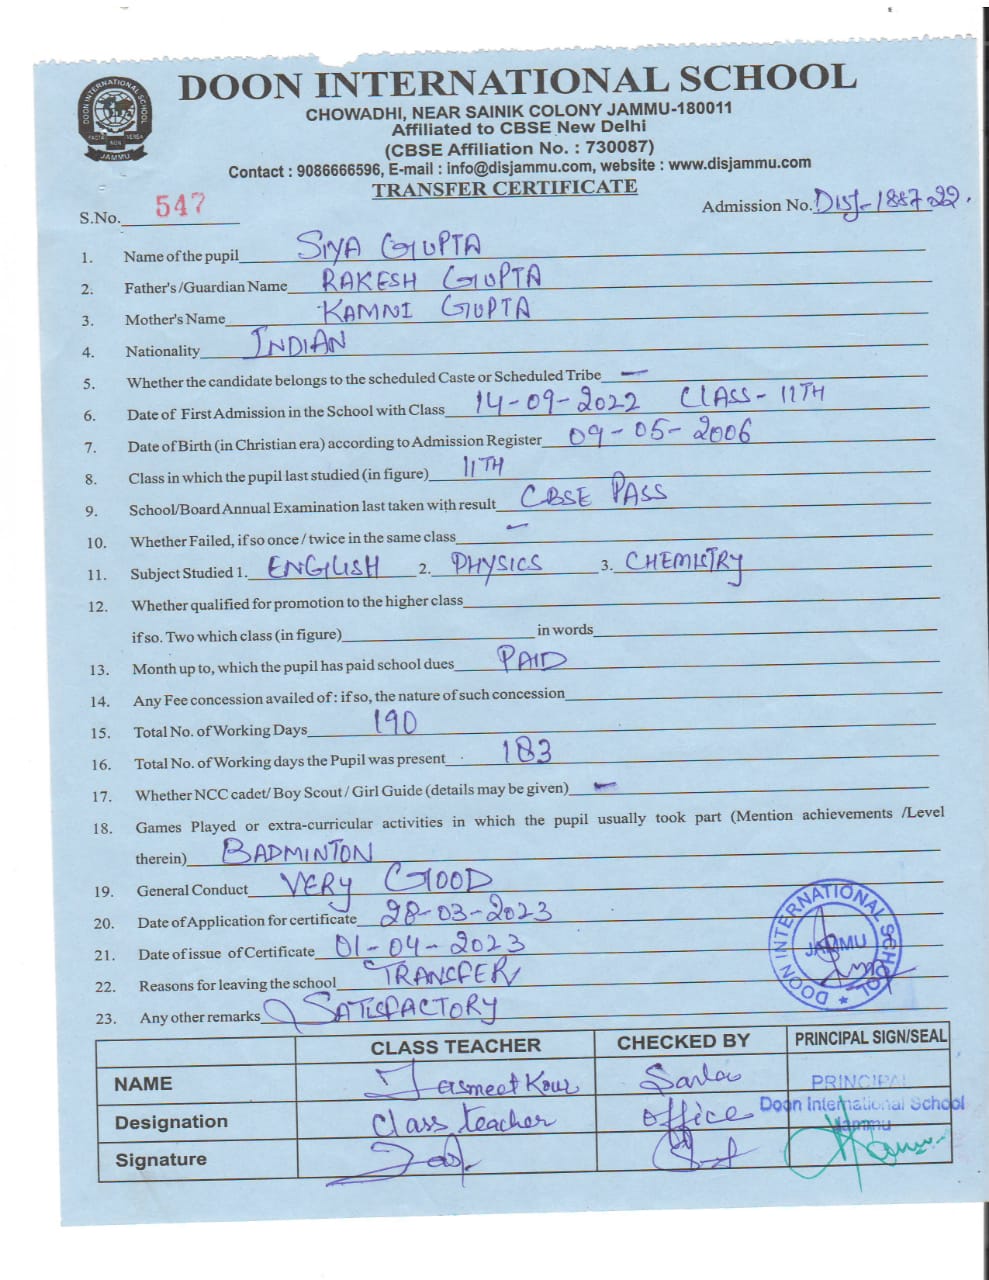 DOON INTERNATIONAL SCHOOL
CHOWADHI, NEAR SAINIK COLONY JAMMU-180011
Affiliated to CBSE New Delhi
(CBSE Affiliation No. : 730087)
Contact : 9086666596, E-mail : info@disjammu.com, website : www.disjammu.com
TRANSFER CERTIFICATE
DOON INTERNATIONAL SCHOOL
JAMMU
S.No. 547
Admission No. DISJ-1887-22.
1. Name of the pupil SIYA GUPTA
2. Father's /Guardian Name RAKESH GUPTA
3. Mother's Name KAMNI GUPTA
4. Nationality INDIAN
5. Whether the candidate belongs to the scheduled Caste or Scheduled Tribe —
6. Date of First Admission in the School with Class 14-09-2022 CLASS-11TH
7. Date of Birth (in Christian era) according to Admission Register 09-05-2006
8. Class in which the pupil last studied (in figure) 11TH
9. School/Board Annual Examination last taken with result CBSE PASS
10. Whether Failed, if so once / twice in the same class —
11. Subject Studied 1. ENGLISH 2. PHYSICS 3. CHEMISTRY
12. Whether qualified for promotion to the higher class
if so. Two which class (in figure) in words
13. Month up to, which the pupil has paid school dues PAID
14. Any Fee concession availed of : if so, the nature of such concession
15. Total No. of Working Days 190
16. Total No. of Working days the Pupil was present 183
17. Whether NCC cadet/ Boy Scout / Girl Guide (details may be given) —
18. Games Played or extra-curricular activities in which the pupil usually took part (Mention achievements /Level
therein) BADMINTON
19. General Conduct VERY GOOD
20. Date of Application for certificate 28-03-2023
21. Date of issue of Certificate 01-04-2023
22. Reasons for leaving the school TRANSFER
23. Any other remarks SATISFACTORY
DOON INTERNATIONAL SCHOOL
JAMMU
CLASS TEACHER CHECKED BY PRINCIPAL SIGN/SEAL
NAME Jasmeet Kour PRINCIPAL
Designation Class teacher office Doon International School
Jammu
Signature